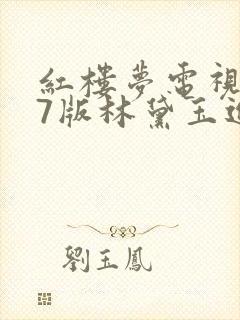 紅樓夢電視
7版林黛玉進
劉玉鳳